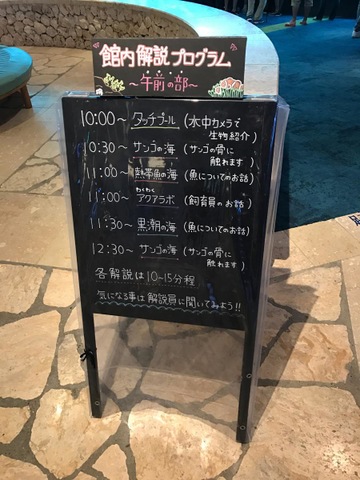 館内解説プログラム
～午前の部～
10:00～ タッチプール (水中カメラで
生物紹介)
10:30～ サンゴの海 (サンゴの骨に
触れます)
11:00～ 熱帯魚の海 (魚についてのお話)
わくわく
11:00～ アクアラボ (飼育員のお話)
11:30～ 黒潮の海 (魚についてのお話)
12:30～ サンゴの海 (サンゴの骨に
触れます)
各解説は10~15分程
気になる事は解説員に聞いてみよう!!